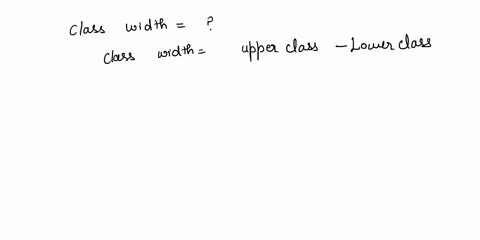 class width = ?
class width = upper class - Lower class